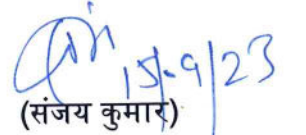 15/9/23
(संजय कुमार)